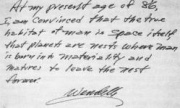 At my present age of 86,
I am convinced that the true
habitat of man is Space itself
that planets are nests where man
is born in materiality and
matures to leave the nest
forever.
Wendelle